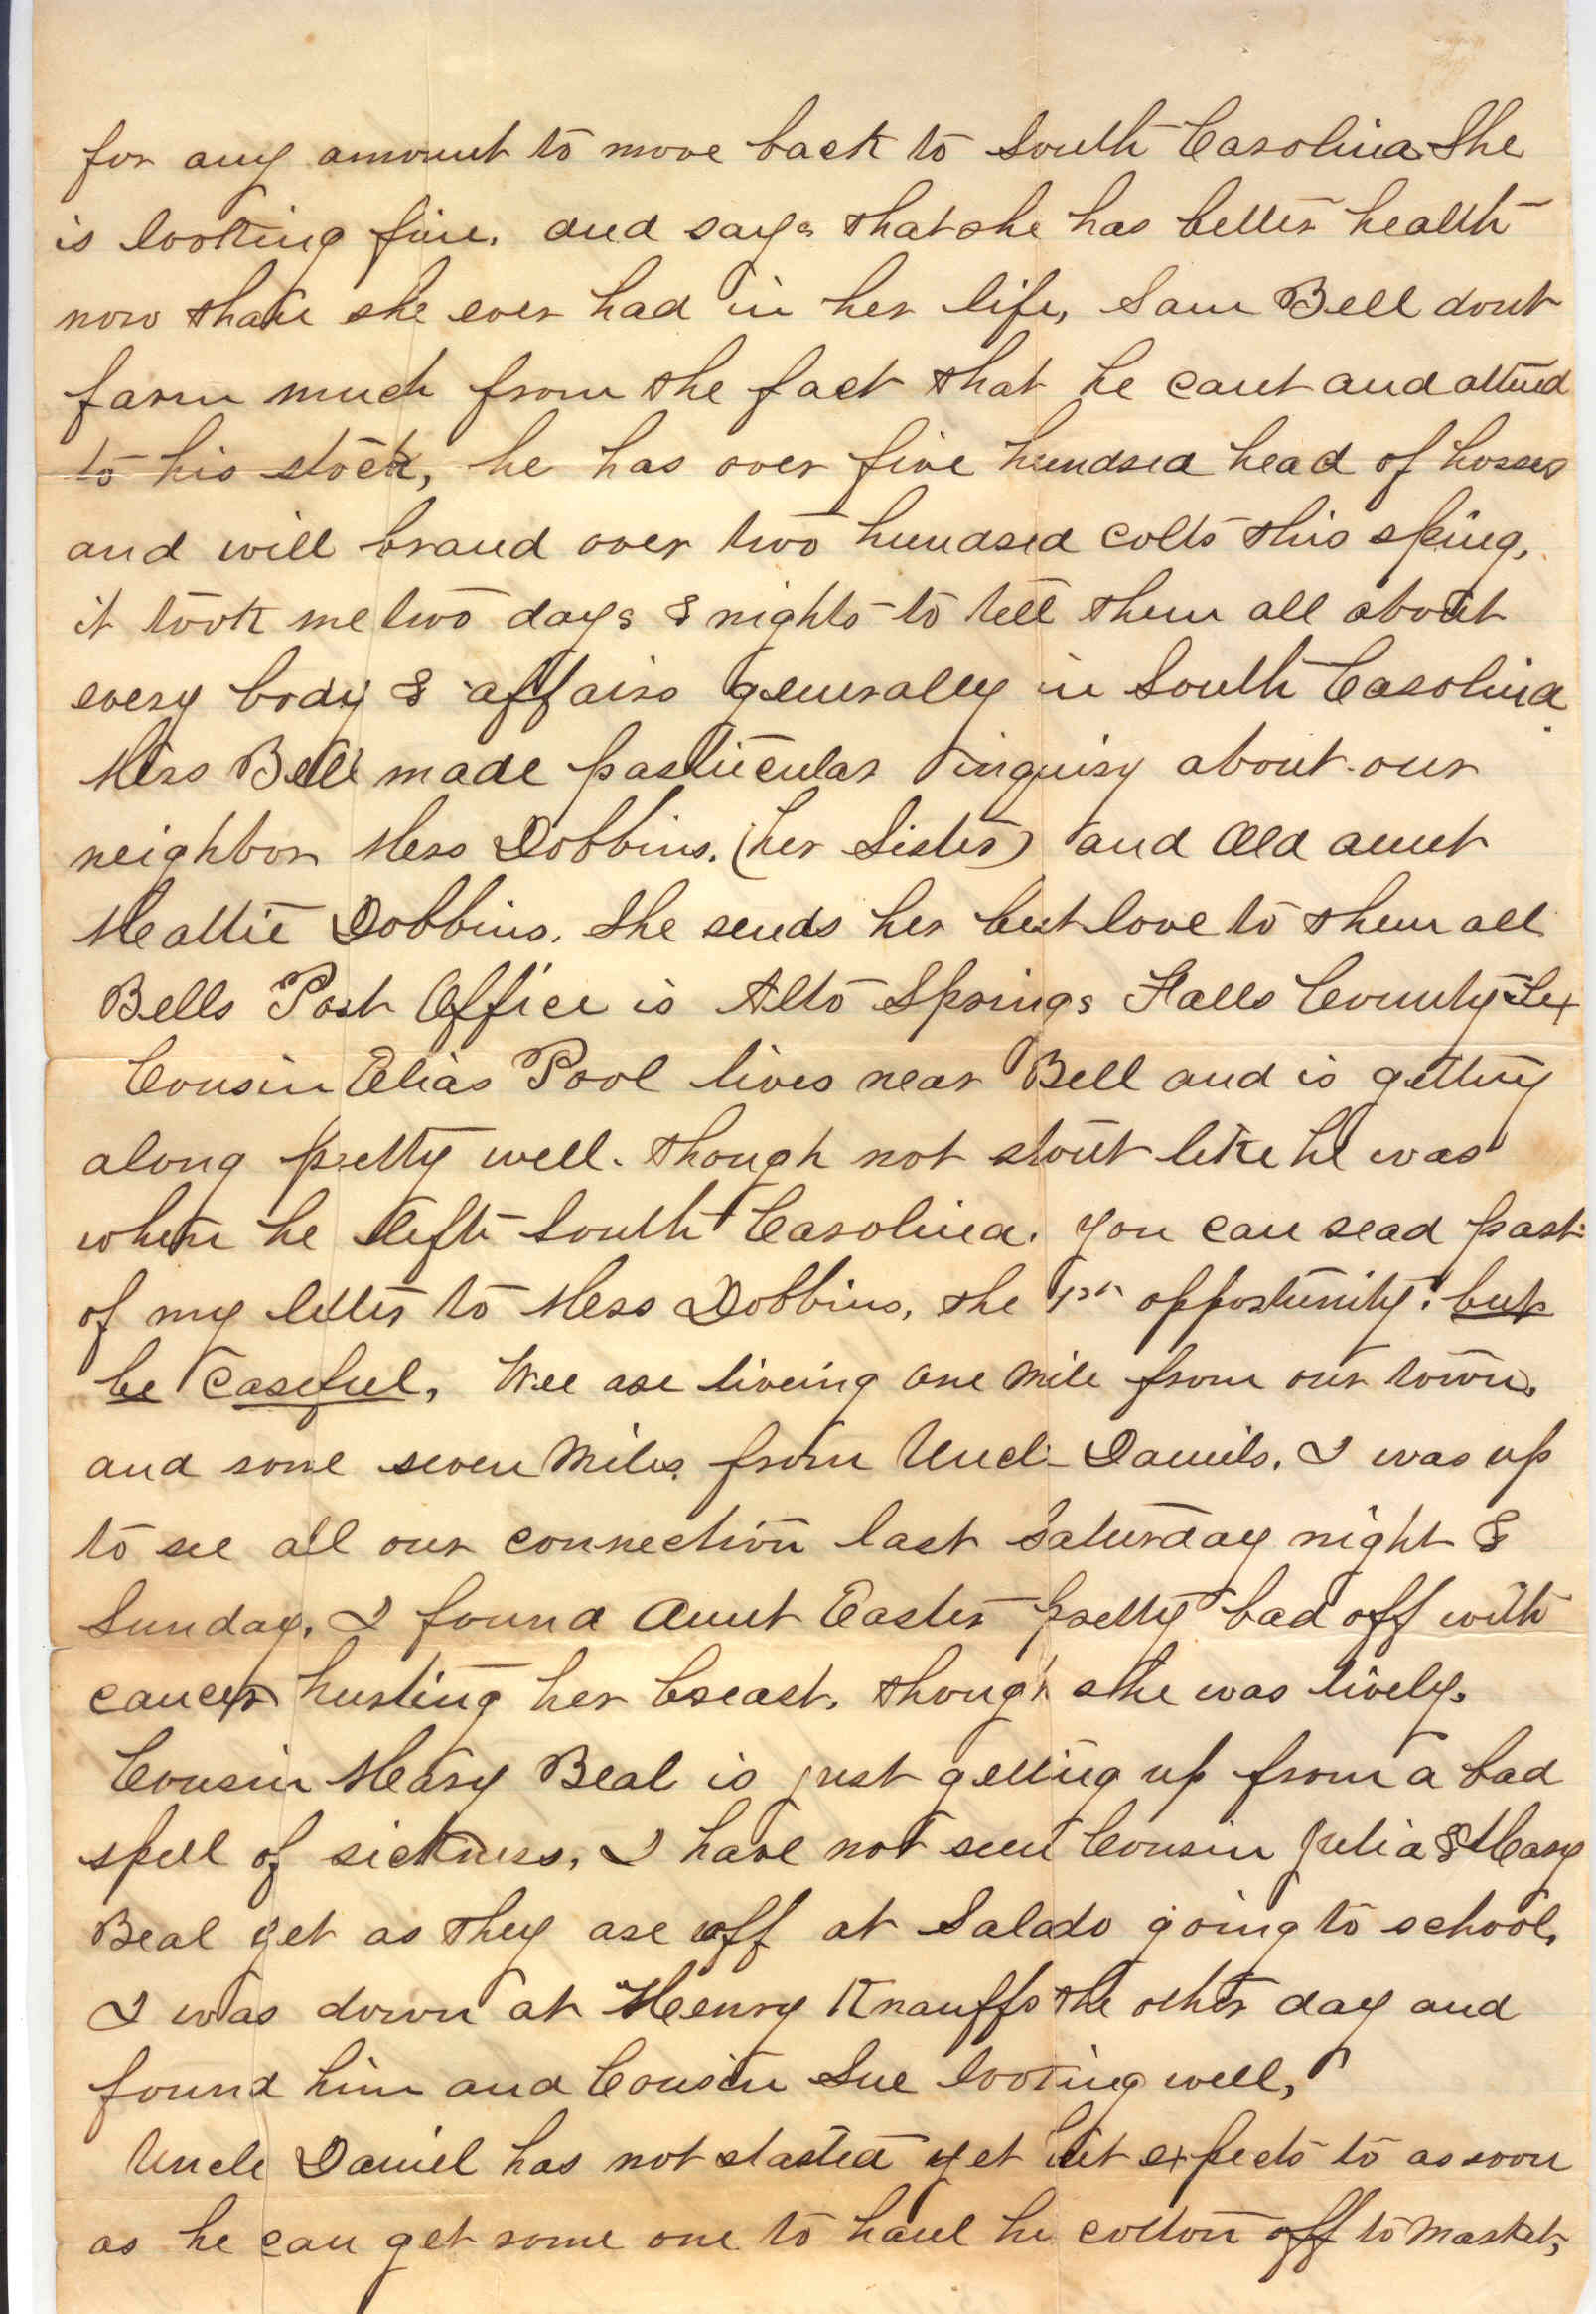 for any amount to move back to South Carolina. She
is looking fine. and says that she has better health
now than she ever had in her life, Sam Bell dont
farm much from the fact that he cant and attend
to his stock, he has over five hundred head of horses
and will brand over two hundred colts this sping,
it took me two days & nights to tell them all about
every body & affairs generaley in South Carolina.
Mrs Bell made particular inquiry about our
neighbor Mrs Dobbins. (her Sister) and Old aunt
Mattie Dobbins. She sends her best love to them all
Bells Post Office is Alto Springs Falls County Tex
Cousin Elias Pool lives near Bell and is getting
along pretty well. though not stout like he was
when he left South Carolina. you can read part
of my letter to Mrs Dobbins, the 1st opportunity. but
be Careful, Wee are liveing one mile from our town,
and some seven miles from Uncle Daniels. I was up
to see all our connection last Saturday night &
Sunday. I found Aunt Easter pretty bad off with
cancer hurting her breast. though she was lively.
Cousin Mary Beal is just getting up from a bad
spell of sickness, I have not seen Cousin Julia & Mary
Beal yet as they are off at Salado going to school,
I was down at Henry Knauffs the other day and
found him and Cousin Sue looking well,
Uncle Daniel has not started yet but expects to as soon
as he can get some one to haul his cotton off to market,